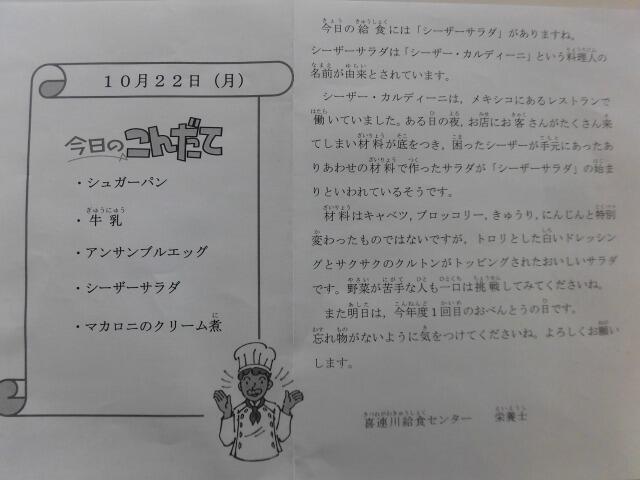 10月22日（月）
今日のこんだて
・シュガーパン
・牛乳
・アンサンブルエッグ
・シーザーサラダ
・マカロニのクリーム煮
今日の給食には「シーザーサラダ」がありますね。
シーザーサラダは「シーザー・カルディーニ」という料理人の
名前が由来とされています。
シーザー・カルディーニは，メキシコにあるレストランで
働いていました。ある日の夜，お店にお客さんがたくさん来
てしまい材料が底をつき，困ったシーザーが手元にあったあ
りあわせの材料で作ったサラダが「シーザーサラダ」の始ま
りといわれているそうです。
材料はキャベツ，ブロッコリー，きゅうり，にんじんと特別
変わったものではないですが，トロリとした白いドレッシン
グとサクサクのクルトンがトッピングされたおいしいサラダ
です。野菜が苦手な人も一口は挑戦してみてくださいね。
また明日は，今年度1回目のおべんとうの日です。
忘れ物がないように気をつけてくださいね。よろしくお願い
します。
喜連川給食センター　栄養士